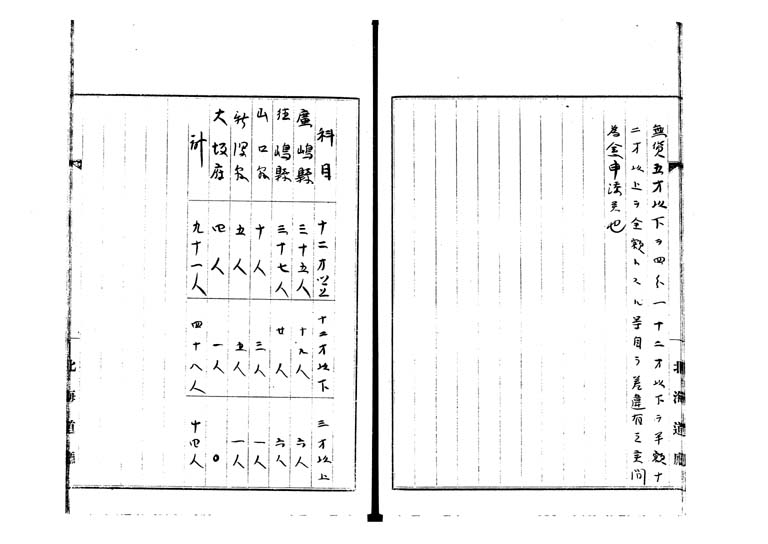 無賃五才以下ヲ四分一十二才以下ヲ半額十
二才以上ヲ全額トスル等自ラ差違有之実聞
為念申添候也
北海道廳
科目 十二才以上 十二才以下 三才以上
廣嶋縣 三十五人 十九人 六人
徳嶋縣 三十七人 廿人 六人
山口縣 十人 三人 一人
新潟縣 五人 五人 一人
大坂府 四人 一人 0
計 九十一人 四十八人 十四人
北海道廳